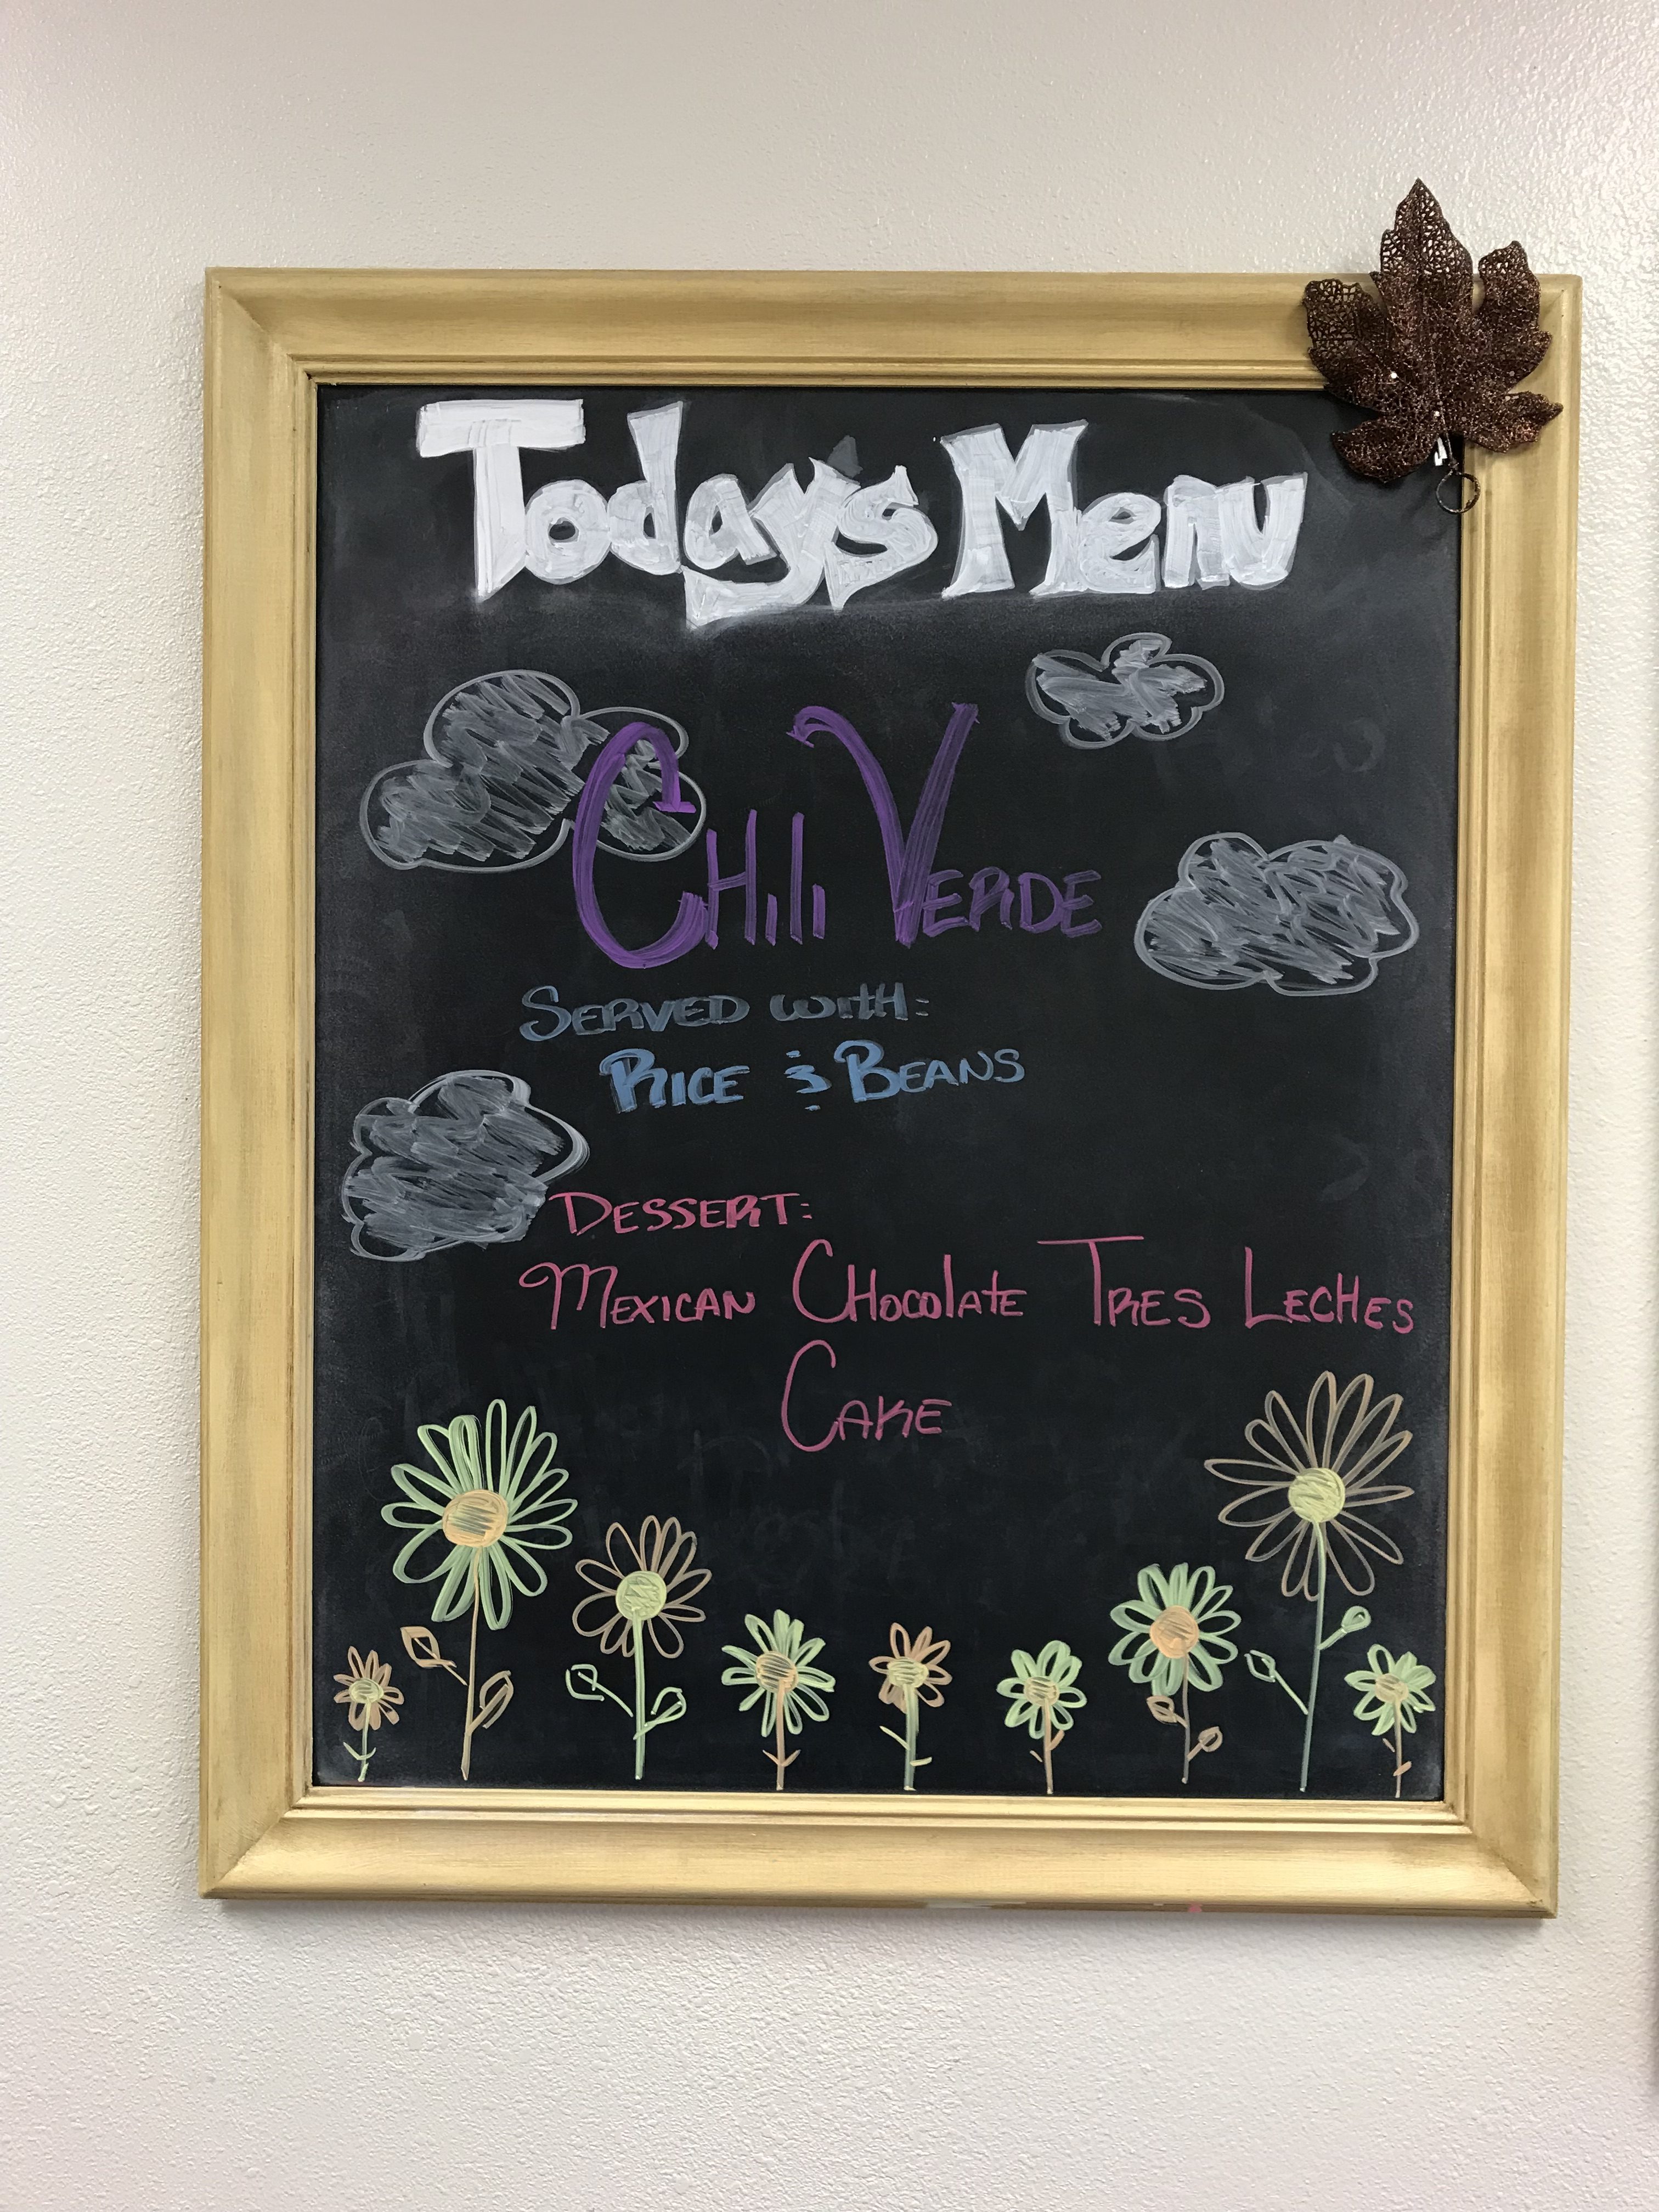 Today's Menu
Chili Verde
Served with:
Rice & Beans
Dessert:
Mexican Chocolate Tres Leches
Cake